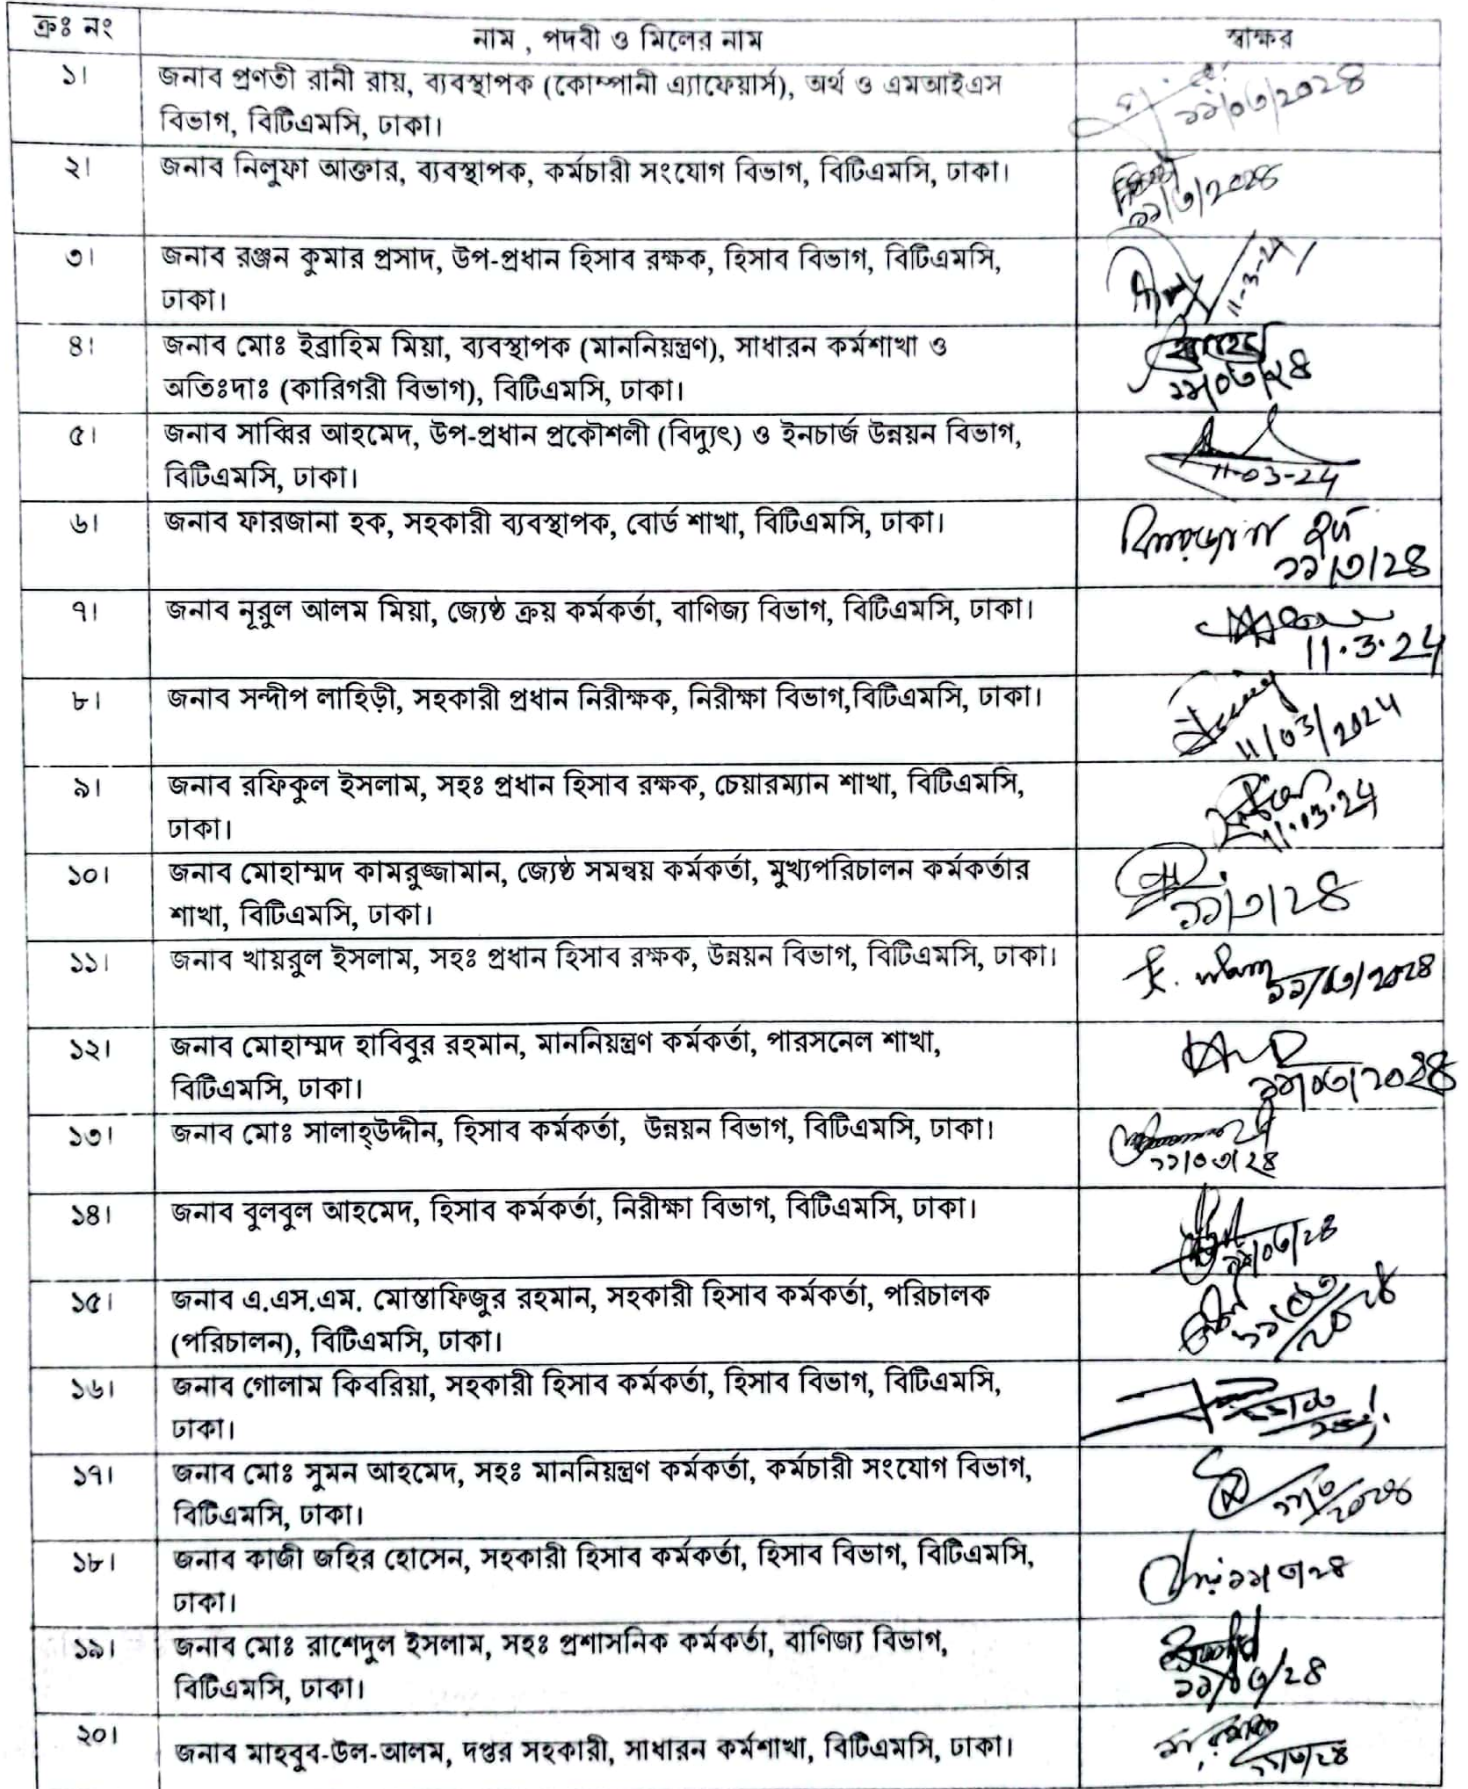 ক্রঃ নং নাম , পদবী ও মিলের নাম স্বাক্ষর
১। জনাব প্রণতী রানী রায়, ব্যবস্থাপক (কোম্পানী এ্যাফেয়ার্স), অর্থ ও এমআইএস
বিভাগ, বিটিএমসি, ঢাকা।
১১/০৩/২০২৪
২। জনাব নিলুফা আক্তার, ব্যবস্থাপক, কর্মচারী সংযোগ বিভাগ, বিটিএমসি, ঢাকা।
১১/৩/২০২৪
৩। জনাব রঞ্জন কুমার প্রসাদ, উপ-প্রধান হিসাব রক্ষক, হিসাব বিভাগ, বিটিএমসি,
ঢাকা।
11-3-24
৪। জনাব মোঃ ইব্রাহিম মিয়া, ব্যবস্থাপক (মাননিয়ন্ত্রণ), সাধারন কর্মশাখা ও
অতিঃদাঃ (কারিগরী বিভাগ), বিটিএমসি, ঢাকা।
১১/০৩/২৪
৫। জনাব সাব্বির আহমেদ, উপ-প্রধান প্রকৌশলী (বিদ্যুৎ) ও ইনচার্জ উন্নয়ন বিভাগ,
বিটিএমসি, ঢাকা।
11-03-24
৬। জনাব ফারজানা হক, সহকারী ব্যবস্থাপক, বোর্ড শাখা, বিটিএমসি, ঢাকা।
ফারজানা হক
১১/৩/২৪
৭। জনাব নূরুল আলম মিয়া, জ্যেষ্ঠ ক্রয় কর্মকর্তা, বাণিজ্য বিভাগ, বিটিএমসি, ঢাকা।
11.3.24
৮। জনাব সন্দীপ লাহিড়ী, সহকারী প্রধান নিরীক্ষক, নিরীক্ষা বিভাগ,বিটিএমসি, ঢাকা।
11/03/2024
৯। জনাব রফিকুল ইসলাম, সহঃ প্রধান হিসাব রক্ষক, চেয়ারম্যান শাখা, বিটিএমসি,
ঢাকা।
11.03.24
১০। জনাব মোহাম্মদ কামরুজ্জামান, জ্যেষ্ঠ সমন্বয় কর্মকর্তা, মুখ্যপরিচালন কর্মকর্তার
শাখা, বিটিএমসি, ঢাকা।
১১/৩/২৪
১১। জনাব খায়রুল ইসলাম, সহঃ প্রধান হিসাব রক্ষক, উন্নয়ন বিভাগ, বিটিএমসি, ঢাকা।
১১/০৩/২০২৪
১২। জনাব মোহাম্মদ হাবিবুর রহমান, মাননিয়ন্ত্রণ কর্মকর্তা, পারসনেল শাখা,
বিটিএমসি, ঢাকা।
১১/০৩/২০২৪
১৩। জনাব মোঃ সালাহ্উদ্দীন, হিসাব কর্মকর্তা, উন্নয়ন বিভাগ, বিটিএমসি, ঢাকা।
১১/০৩/২৪
১৪। জনাব বুলবুল আহমেদ, হিসাব কর্মকর্তা, নিরীক্ষা বিভাগ, বিটিএমসি, ঢাকা।
১১/০৩/২৪
১৫। জনাব এ.এস.এম. মোস্তাফিজুর রহমান, সহকারী হিসাব কর্মকর্তা, পরিচালক
(পরিচালন), বিটিএমসি, ঢাকা।
১১/০৩/২০২৪
১৬। জনাব গোলাম কিবরিয়া, সহকারী হিসাব কর্মকর্তা, হিসাব বিভাগ, বিটিএমসি,
ঢাকা।
১৭। জনাব মোঃ সুমন আহমেদ, সহঃ মাননিয়ন্ত্রণ কর্মকর্তা, কর্মচারী সংযোগ বিভাগ,
বিটিএমসি, ঢাকা।
১১/৩/২০২৪
১৮। জনাব কাজী জহির হোসেন, সহকারী হিসাব কর্মকর্তা, হিসাব বিভাগ, বিটিএমসি,
ঢাকা।
১১/৩/২৪
১৯। জনাব মোঃ রাশেদুল ইসলাম, সহঃ প্রশাসনিক কর্মকর্তা, বাণিজ্য বিভাগ,
বিটিএমসি, ঢাকা।
১১/০৩/২৪
২০। জনাব মাহবুব-উল-আলম, দপ্তর সহকারী, সাধারন কর্মশাখা, বিটিএমসি, ঢাকা।
১১/৩/২৪